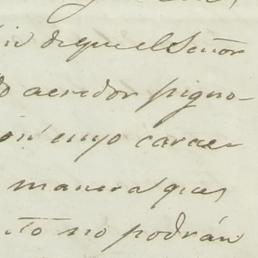 de que el Señor
acredor pigno-
cuyo carac-
manera que
no podrán